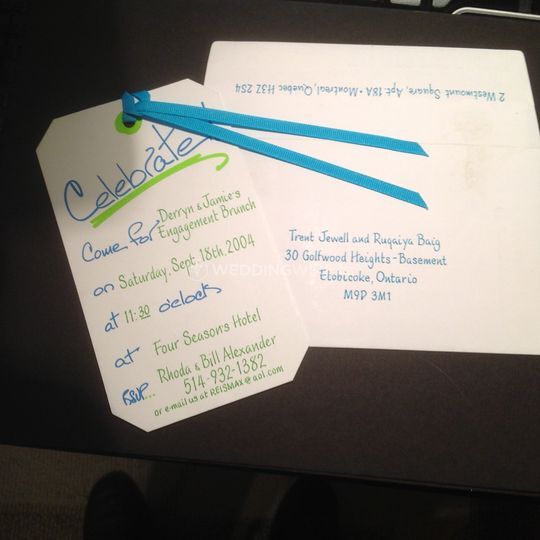 Celebrate!
Come for Derryn & Jamie's
Engagement Brunch
on Saturday, Sept. 18th, 2004
at 11:30 o'clock
at Four Season's Hotel
RSVP... Rhoda & Bill Alexander
514-932-1382
or e-mail us at REISMAX@aol.com
2 Westmount Square, Apt 18A • Montreal, Quebec H3Z 2S4
Trent Jewell and Ruqaiya Baig
30 Golfwood Heights - Basement
Etobicoke, Ontario
M9P 3M1